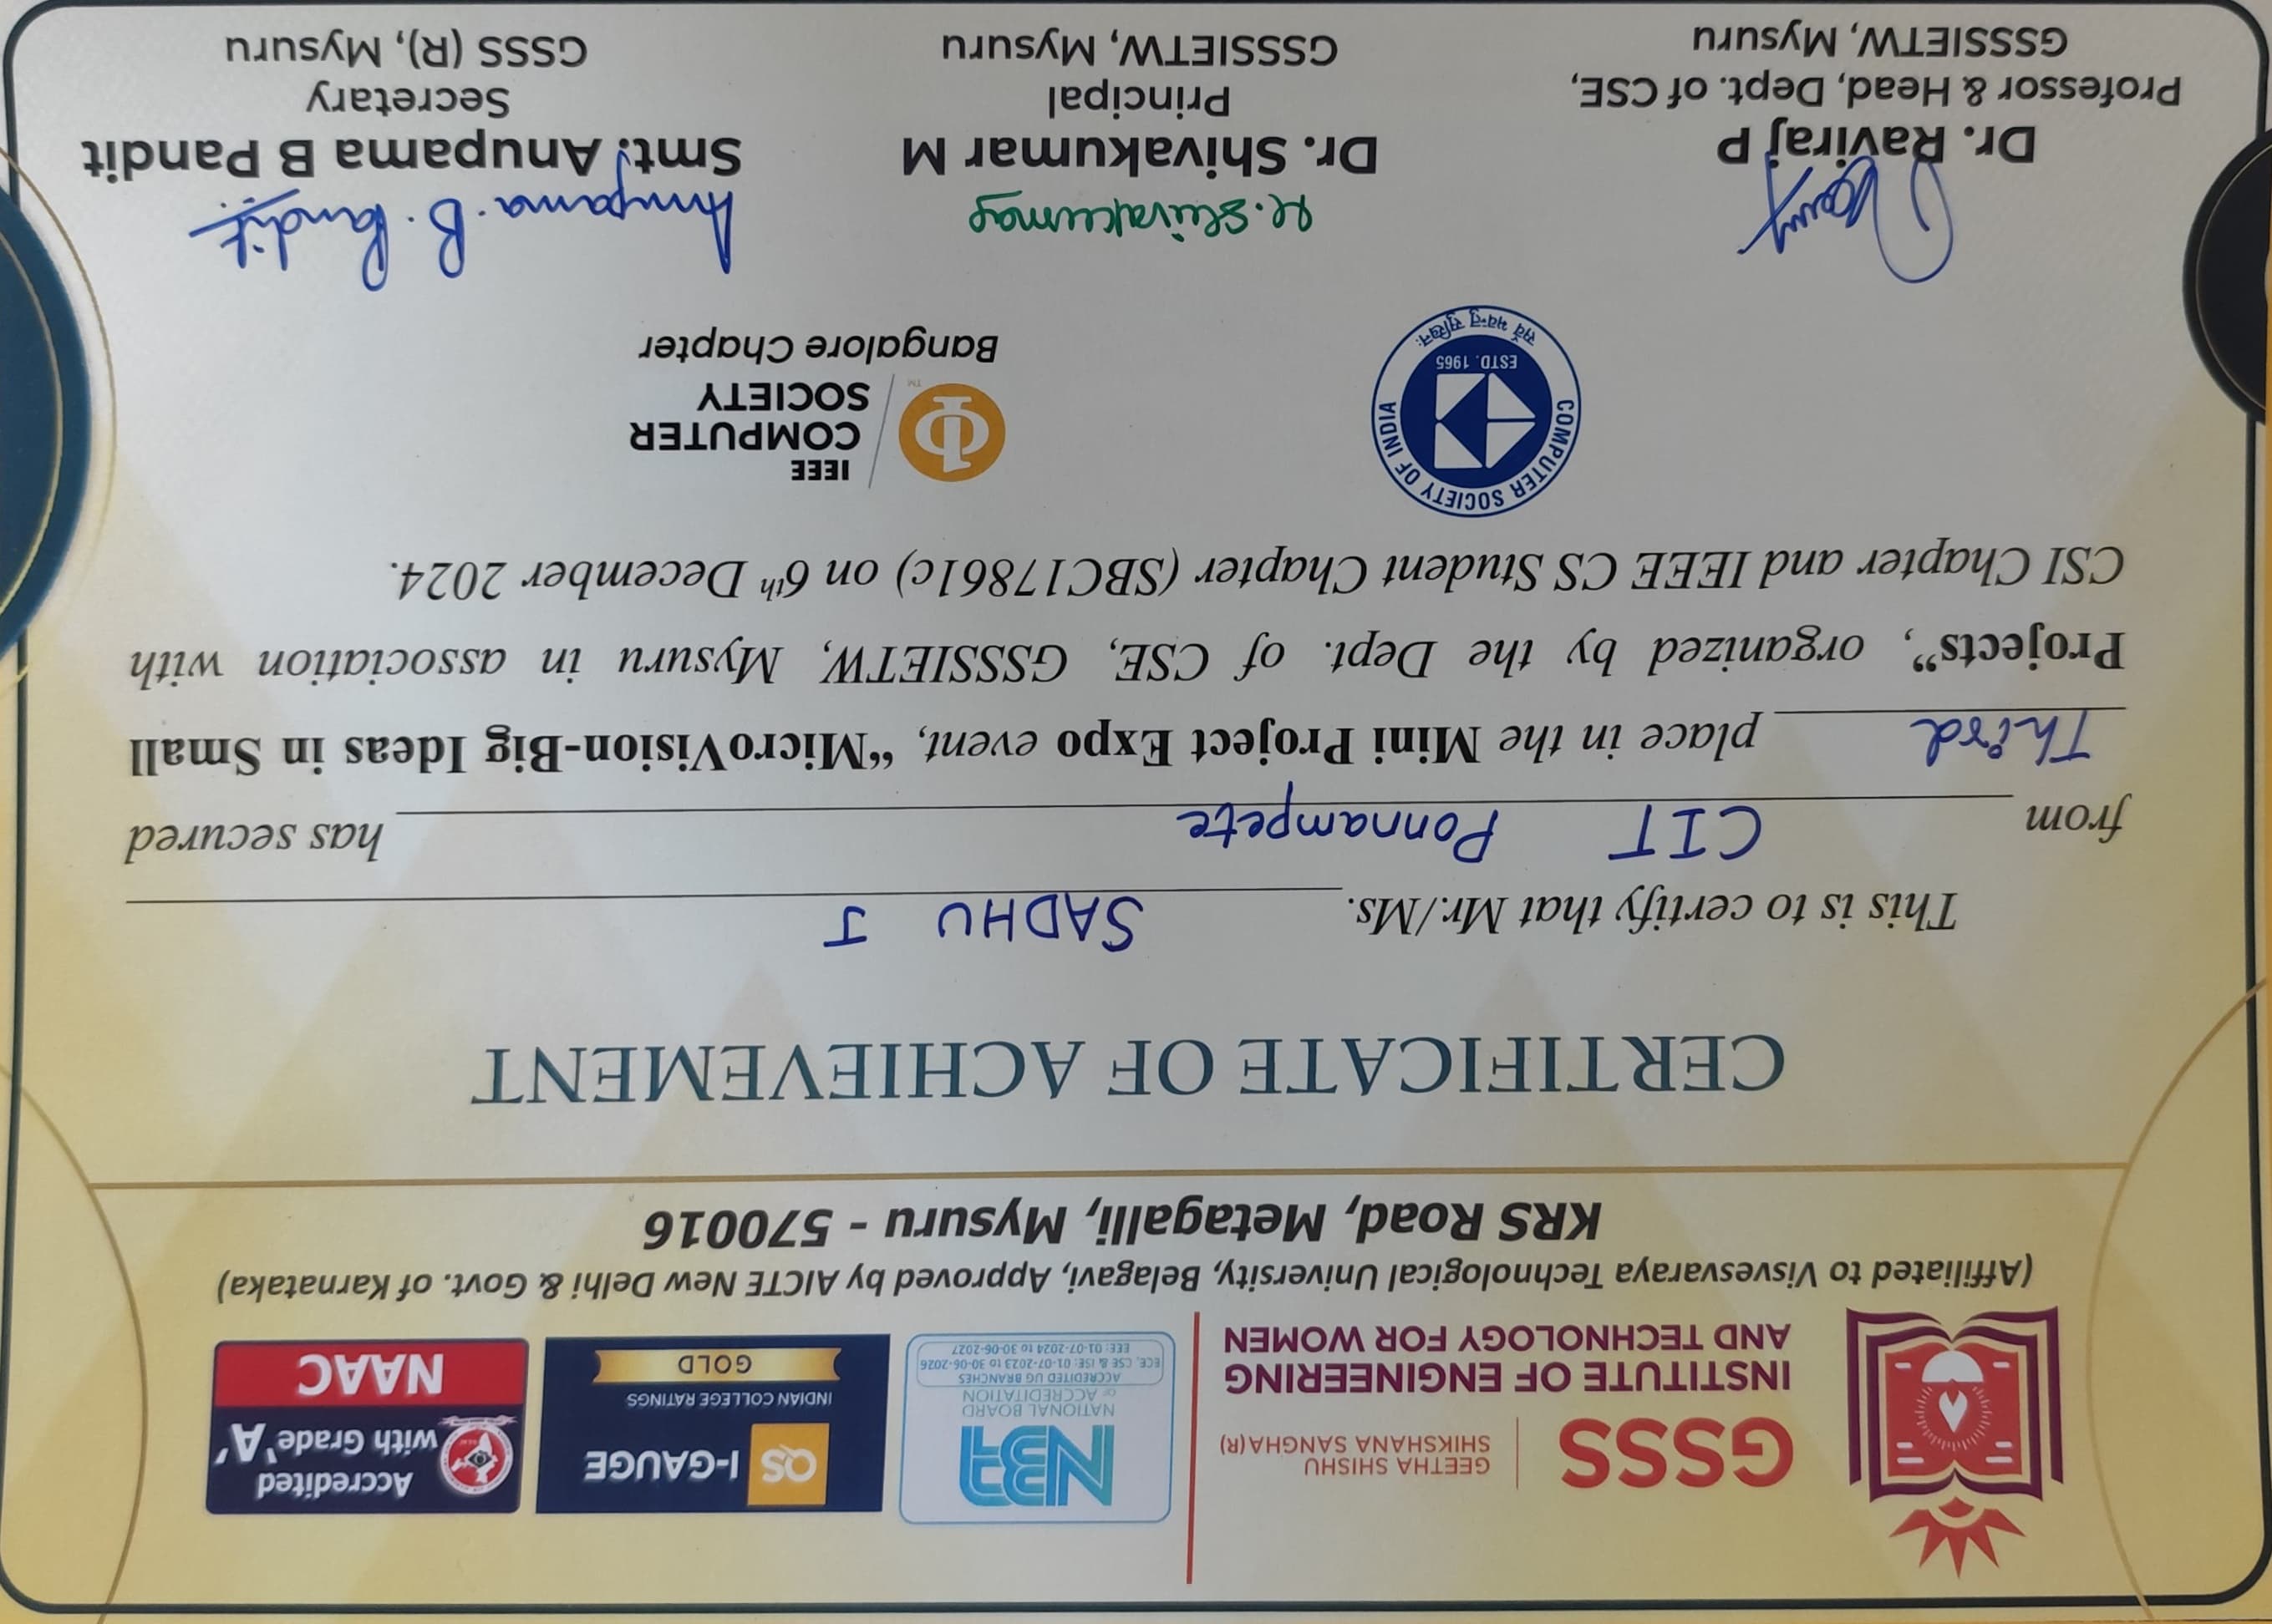 GSSS
GEETHA SHISHU
SHIKSHANA SANGHA(R)
INSTITUTE OF ENGINEERING
AND TECHNOLOGY FOR WOMEN
NBA
NATIONAL BOARD
OF ACCREDITATION
ACCREDITED UG BRANCHES
ECE, CSE & ISE: 01-07-2023 to 30-06-2026
EEE: 01-07-2024 to 30-06-2027
QS I-GAUGE
INDIAN COLLEGE RATINGS
GOLD
Accredited
with Grade 'A'
NAAC
(Affiliated to Visvesvaraya Technological University, Belagavi, Approved by AICTE New Delhi & Govt. of Karnataka)
KRS Road, Metagalli, Mysuru - 570016
CERTIFICATE OF ACHIEVEMENT
This is to certify that Mr./Ms. SADHU J
from CIT Ponnampete has secured
Third place in the Mini Project Expo event, “MicroVision-Big Ideas in Small
Projects”, organized by the Dept. of CSE, GSSSIETW, Mysuru in association with
CSI Chapter and IEEE CS Student Chapter (SBC17861c) on 6th December 2024.
COMPUTER SOCIETY OF INDIA
ESTD. 1965
सर्वे भवन्तु सुखिनः
IEEE
COMPUTER
SOCIETY
TM
Bangalore Chapter
M. Shivakumar
Anupama. B. Pandit
Dr. Raviraj P
Professor & Head, Dept. of CSE,
GSSSIETW, Mysuru
Dr. Shivakumar M
Principal
GSSSIETW, Mysuru
Smt. Anupama B Pandit
Secretary
GSSS (R), Mysuru